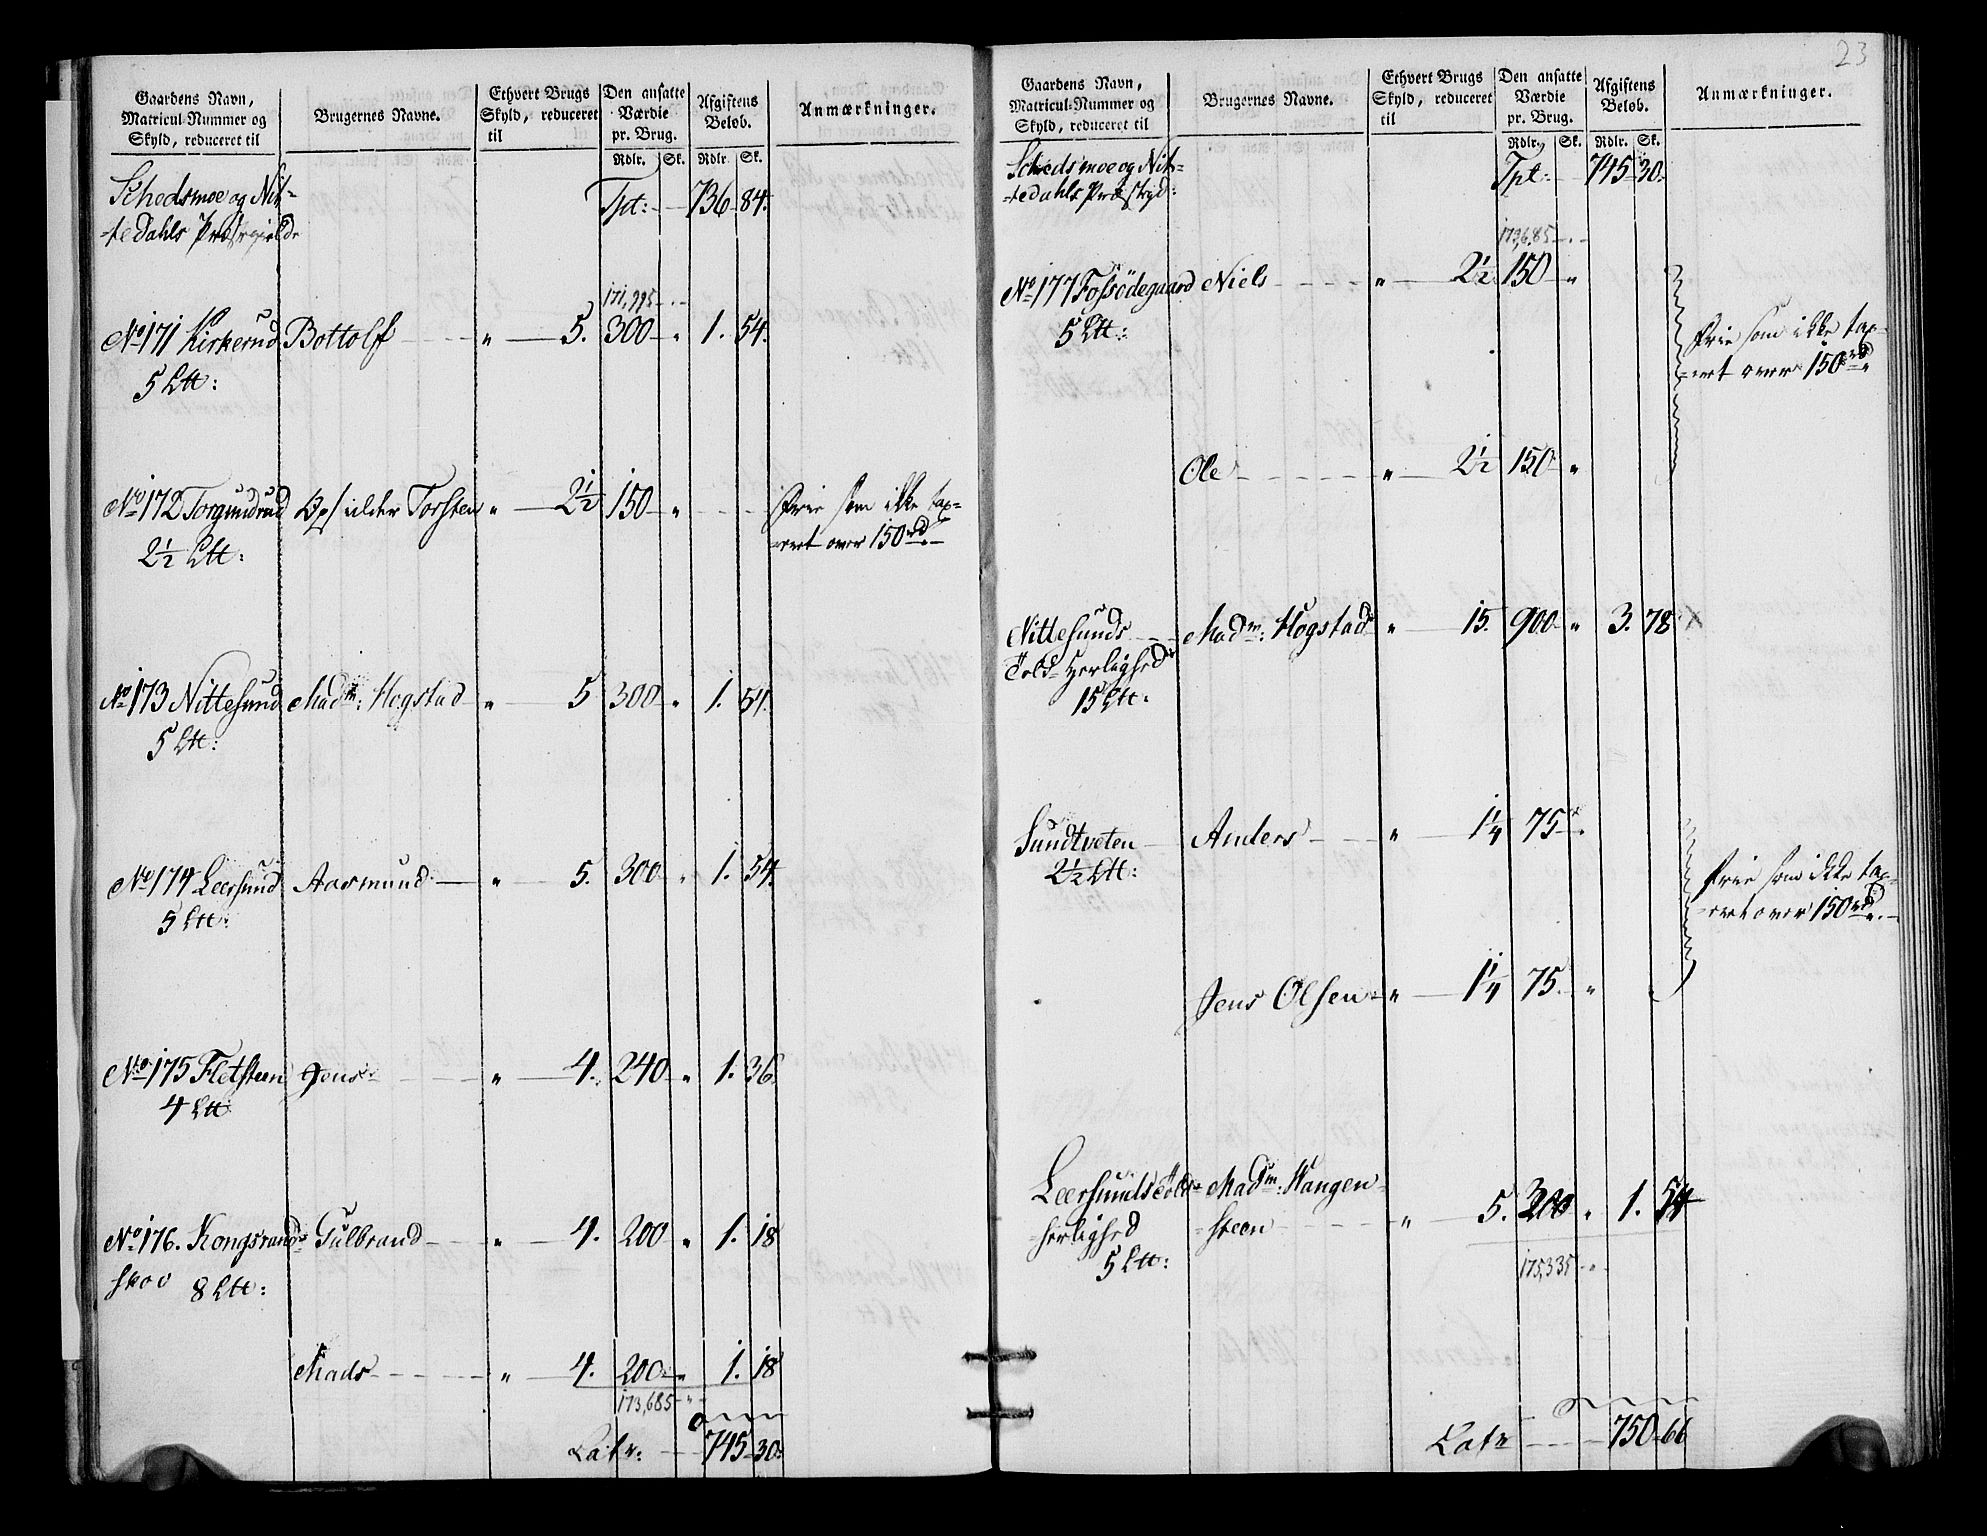 Gaardens Navn, Matricul-Nummer og Skyld, reduceret til | Brugernes Navne. | Ethvert Brugs Skyld, reduceret til | Den ansatte Værdie pr. Brug. Rdlr. Sk. | Afgiftens Beløb. Rdlr. Sk. | Anmærkninger.
Schedsmoe og Nit- Tpt: 736 84.
-tedahls Præstegield
171,995
No 171 Kirkerud Bottolf " 5. 300 " 1. 54.
5 Ltt:
No 172 Torgundrud Opsidder Torsten " 2½ 150 " Frie som ikke tax-
2½ Ltt: -eret over 150 rd.
No 173 Nittesund Madm: Hogstad " 5 300 " 1. 54.
5 Ltt:
No 174 Leersund Aasmund " 5. 300 " 1. 54.
5 Ltt:
No 175 Fletsteen Jens " 4. 240 " 1. 36.
4 Ltt:
No 176. Kongsrund- Gulbrand " 4. 200 " 1. 18
skov 8 Ltt:
Mads " 4. 200 " 1. 18
173,685
Latr: 745 30.
23
Gaardens Navn, Matricul-Nummer og Skyld, reduceret til | Brugernes Navne. | Ethvert Brugs Skyld, reduceret til | Den ansatte Værdie pr. Brug. Rdlr. Sk. | Afgiftens Beløb. Rdlr. Sk. | Anmærkninger.
Schedsmoe og Nit- Tpt: 745 30.
-tedahls Præstgjd:
173,685
No 177 Fossødegaard Niels " 2½ 150 "
5 Ltt: Frie som ikke tax-
-ert over 150 rd.
Ole " 2½ 150 "
Nittesunds Madm: Hogstad " 15. 900 " 3. 78 X
Told-Herlighed
15 Ltt:
Sundtveten Anders " 1¼ 75 "
2½ Ltt: Frie som ikke tax-
-ert over 150 rd.
Jens Olsen " 1¼ 75 "
Leersunds Told- Madm: Wangen-
-herlighed -steen " 5. 300 " 1. 54
5 Ltt:
175,335
Latr 750 66